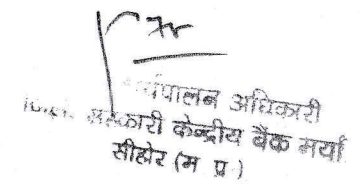 कार्यपालन अधिकारी
सहकारी केन्द्रीय बैंक मर्या
सीहोर (म प्र)